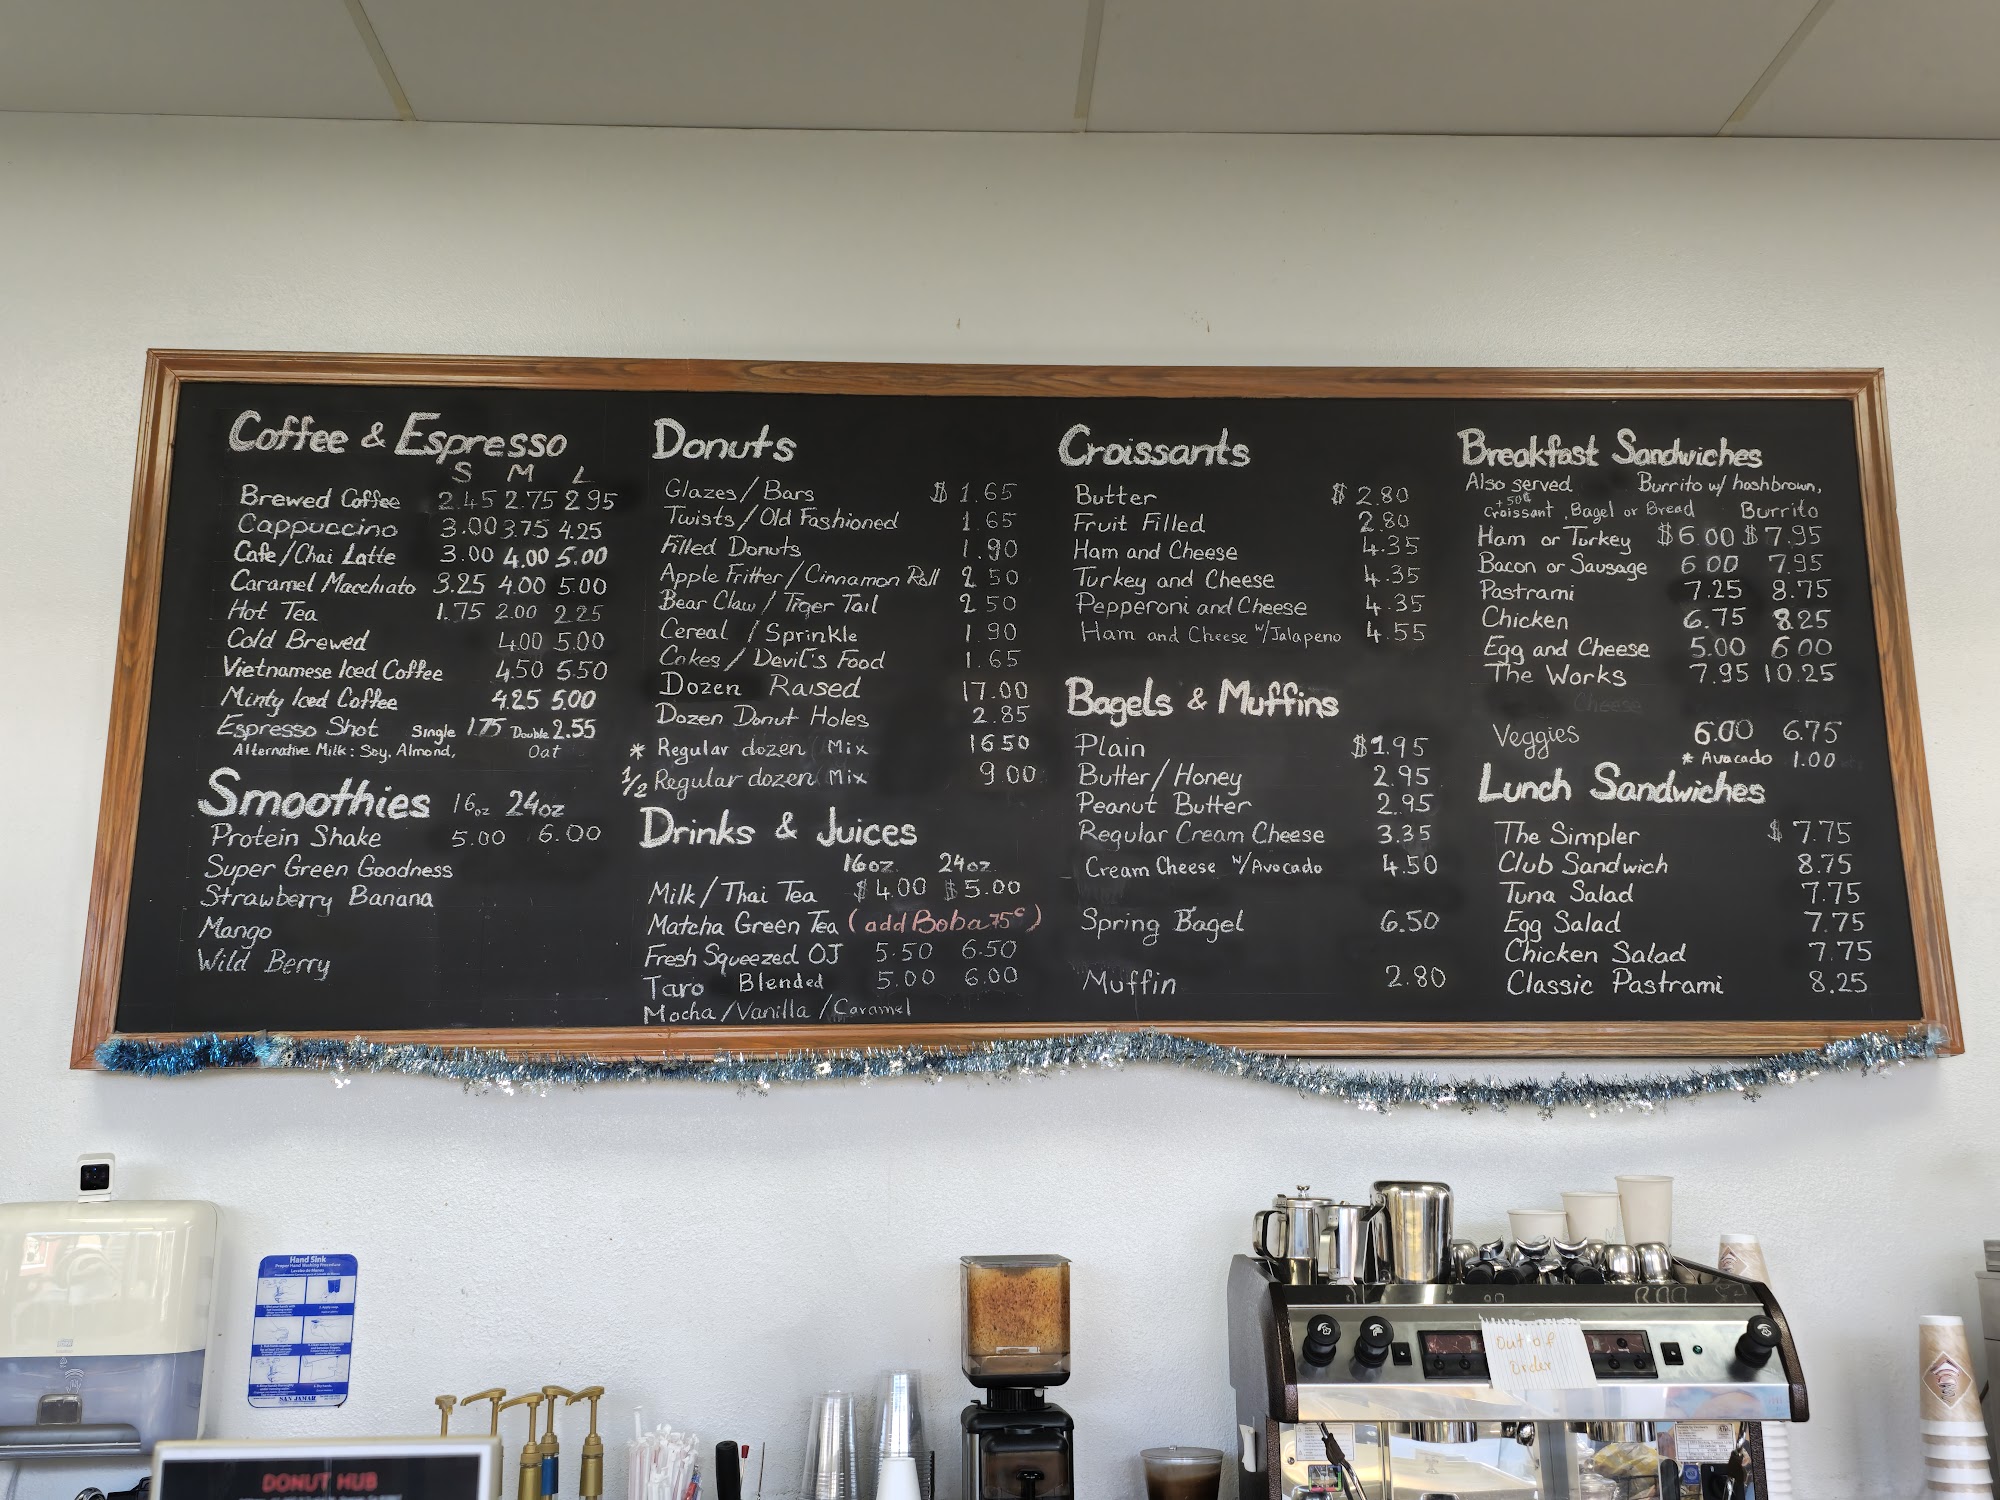 Coffee & Espresso
S M L
Brewed Coffee 2.45 2.75 2.95
Cappuccino 3.00 3.75 4.25
Cafe/Chai Latte 3.00 4.00 5.00
Caramel Macchiato 3.25 4.00 5.00
Hot Tea 1.75 2.00 2.25
Cold Brewed 4.00 5.00
Vietnamese Iced Coffee 4.50 5.50
Minty Iced Coffee 4.25 5.00
Espresso Shot Single 1.75 Double 2.55
Alternative Milk: Soy, Almond, Oat
Smoothies 16oz 24oz
Protein Shake 5.00 6.00
Super Green Goodness
Strawberry Banana
Mango
Wild Berry
Donuts
Glazes/Bars $ 1.65
Twists/Old Fashioned 1.65
Filled Donuts 1.90
Apple Fritter/Cinnamon Roll 2.50
Bear Claw/Tiger Tail 2.50
Cereal/Sprinkle 1.90
Cakes/Devil's Food 1.65
Dozen Raised 17.00
Dozen Donut Holes 2.85
* Regular dozen Mix 16.50
1/2 Regular dozen Mix 9.00
Drinks & Juices
16oz. 24oz.
Milk/Thai Tea $4.00 $5.00
Matcha Green Tea (add Boba 75¢)
Fresh Squeezed OJ 5.50 6.50
Taro Blended 5.00 6.00
Mocha/Vanilla/Caramel
Croissants
Butter $ 2.80
Fruit Filled 2.80
Ham and Cheese 4.35
Turkey and Cheese 4.35
Pepperoni and Cheese 4.35
Ham and Cheese w/Jalapeno 4.55
Bagels & Muffins
Plain $1.95
Butter/Honey 2.95
Peanut Butter 2.95
Regular Cream Cheese 3.35
Cream Cheese w/Avocado 4.50
Spring Bagel 6.50
Muffin 2.80
Breakfast Sandwiches
Also served Burrito w/ hashbrown,
+50¢
Croissant, Bagel or Bread Burrito
Ham or Turkey $6.00 $7.95
Bacon or Sausage 6.00 7.95
Pastrami 7.25 8.75
Chicken 6.75 8.25
Egg and Cheese 5.00 6.00
The Works 7.95 10.25
Cheese
Veggies 6.00 6.75
* Avocado 1.00
Lunch Sandwiches
The Simpler $ 7.75
Club Sandwich 8.75
Tuna Salad 7.75
Egg Salad 7.75
Chicken Salad 7.75
Classic Pastrami 8.25
Hand Sink
Proper Hand Washing Procedure
Lavabo de Manos
SAN JAMAR
Out of
Order
DONUT HUB